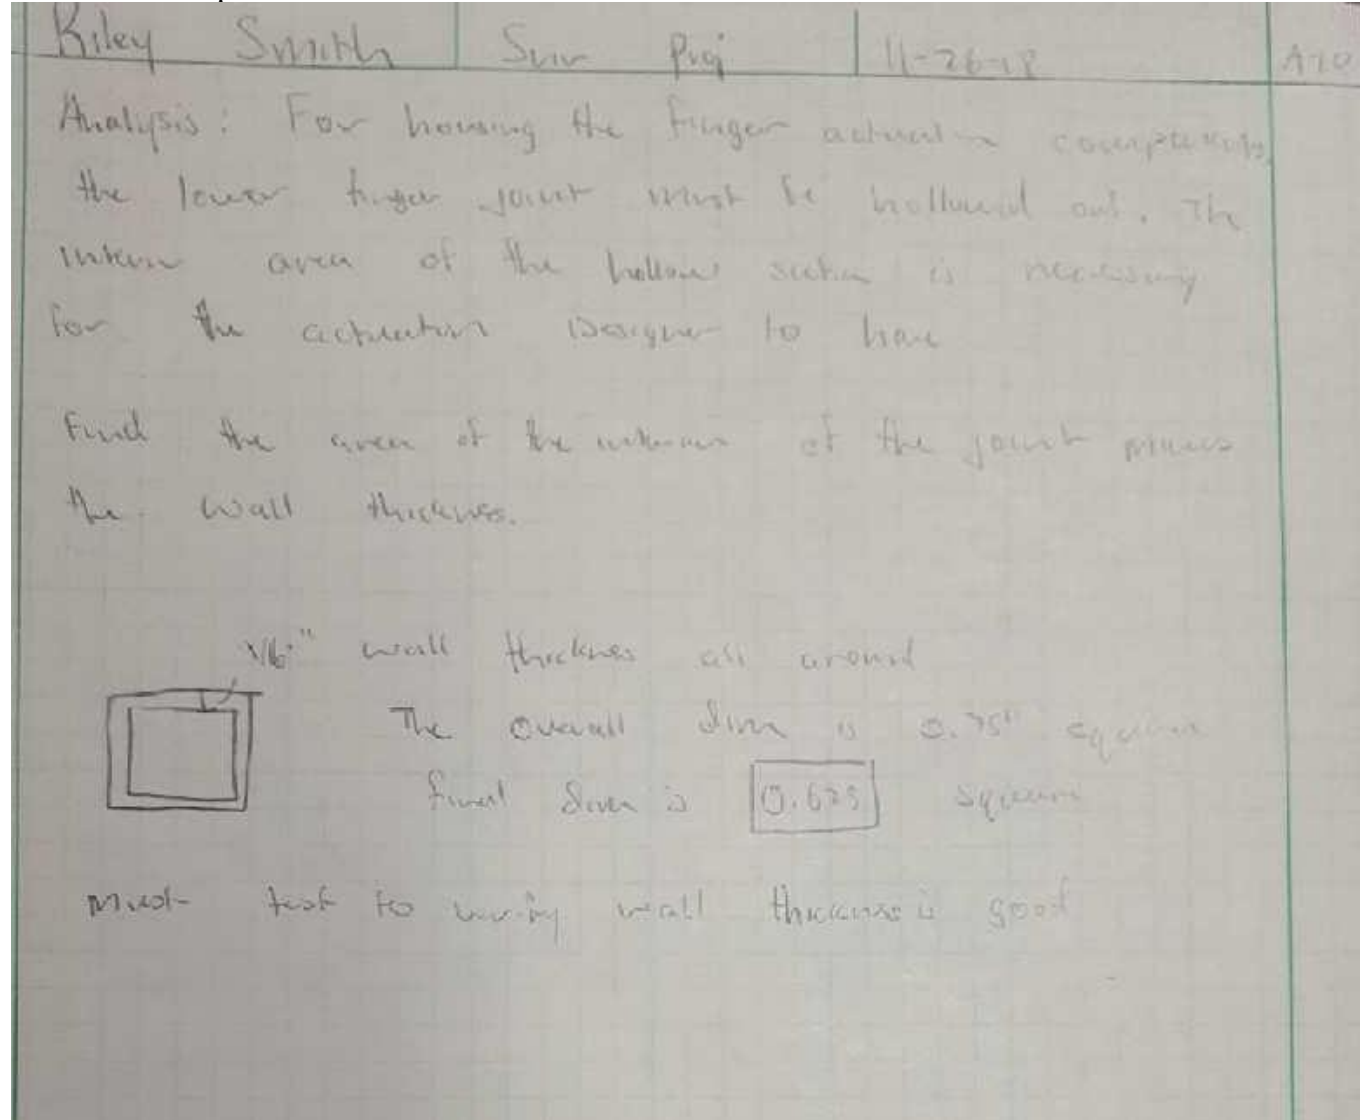 Riley Smith Snr Proj 11-26-18 A10
Analysis: For housing the finger actuation components
the lower finger joint must be hollowed out. The
interior area of the hollow section is necessary
for the actuation Designer to have
Find the area of the interior of the joint minus
the wall thickness.
1/16" wall thickness all around
The overall dim is 0.75" square
final dim is 0.625 square
Must test to verify wall thickness is good